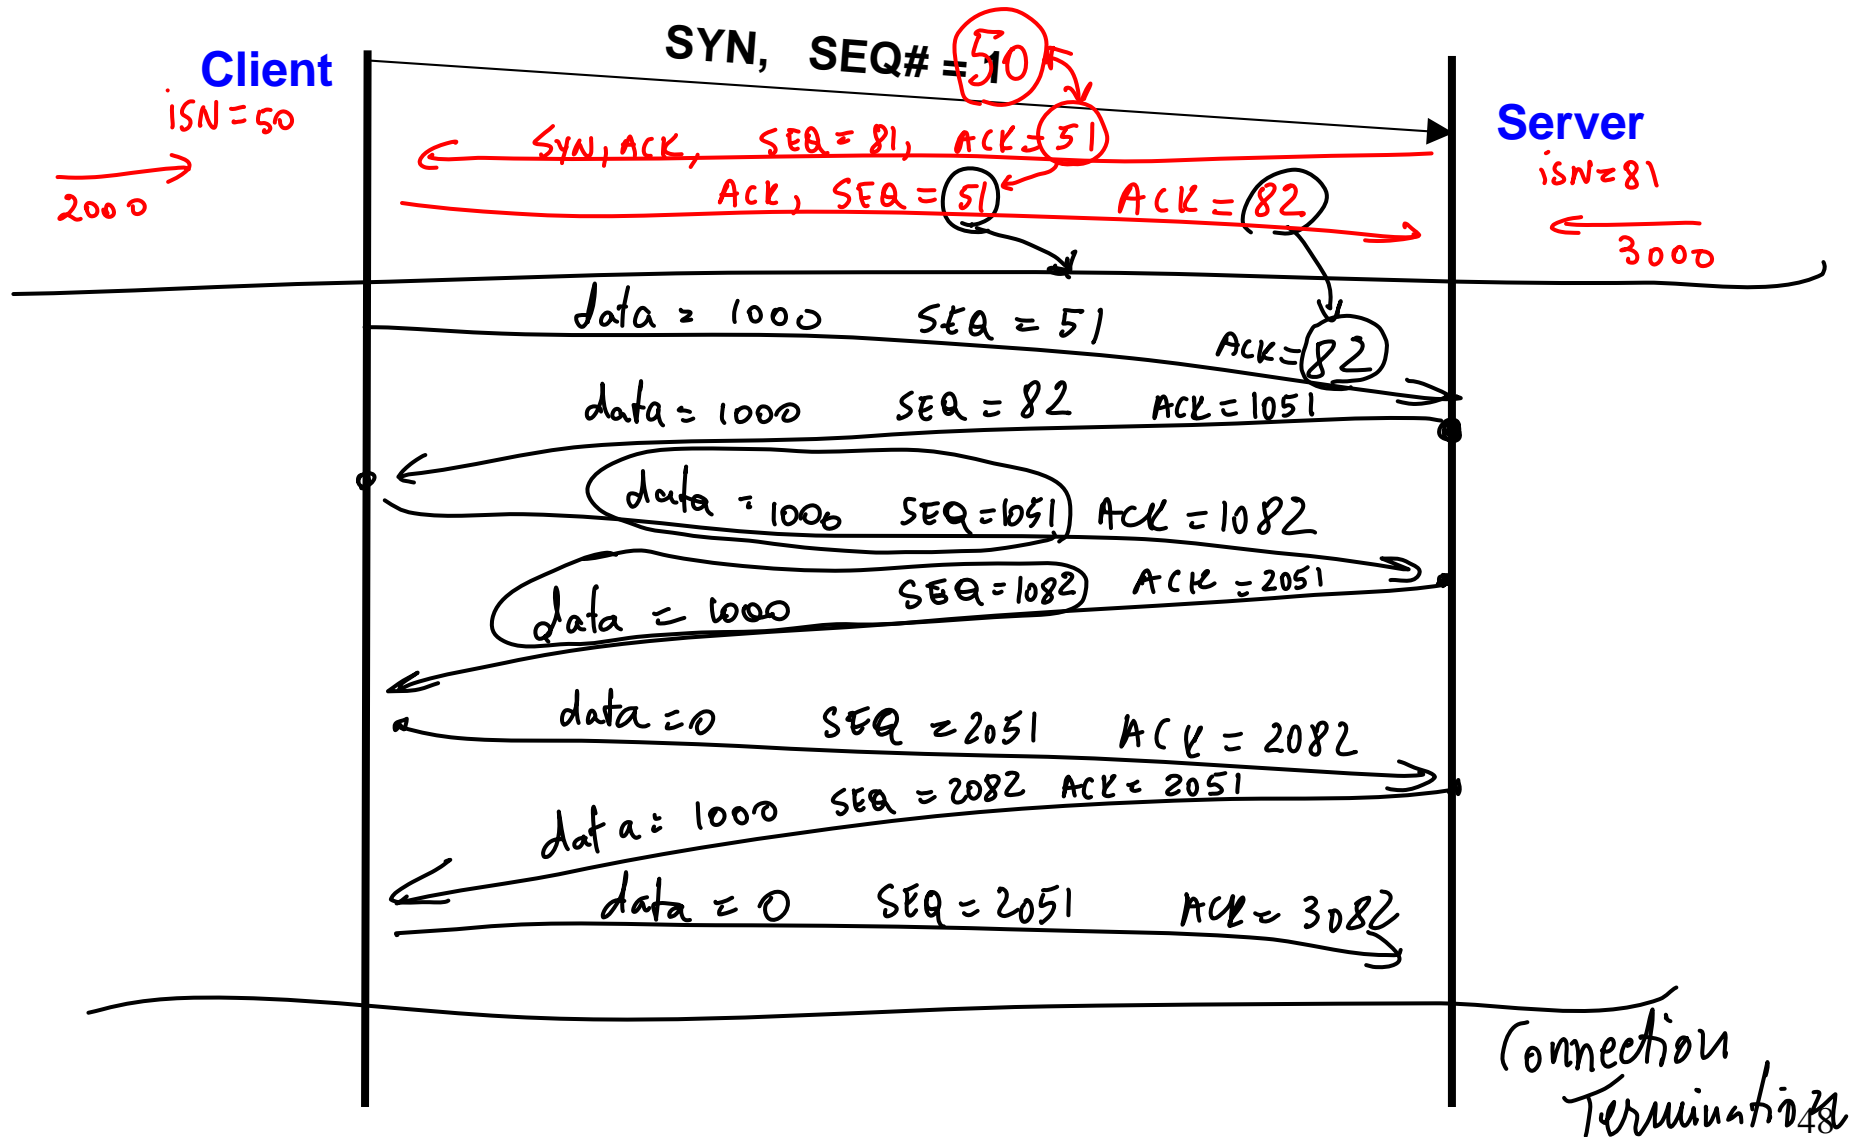 SYN, SEQ# = 50
Client
iSN=50
Server
iSN=81
SYN, ACK, SEQ=81, ACK=51
ACK, SEQ=51 ACK=82
2000
3000
data = 1000 SEQ = 51 ACK=82
data = 1000 SEQ = 82 ACK=1051
data = 1000 SEQ=1051 ACK=1082
data = 1000 SEQ=1082 ACK=2051
data=0 SEQ=2051 ACK=2082
data = 1000 SEQ=2082 ACK=2051
data=0 SEQ=2051 ACK=3082
Connection
Termination
48